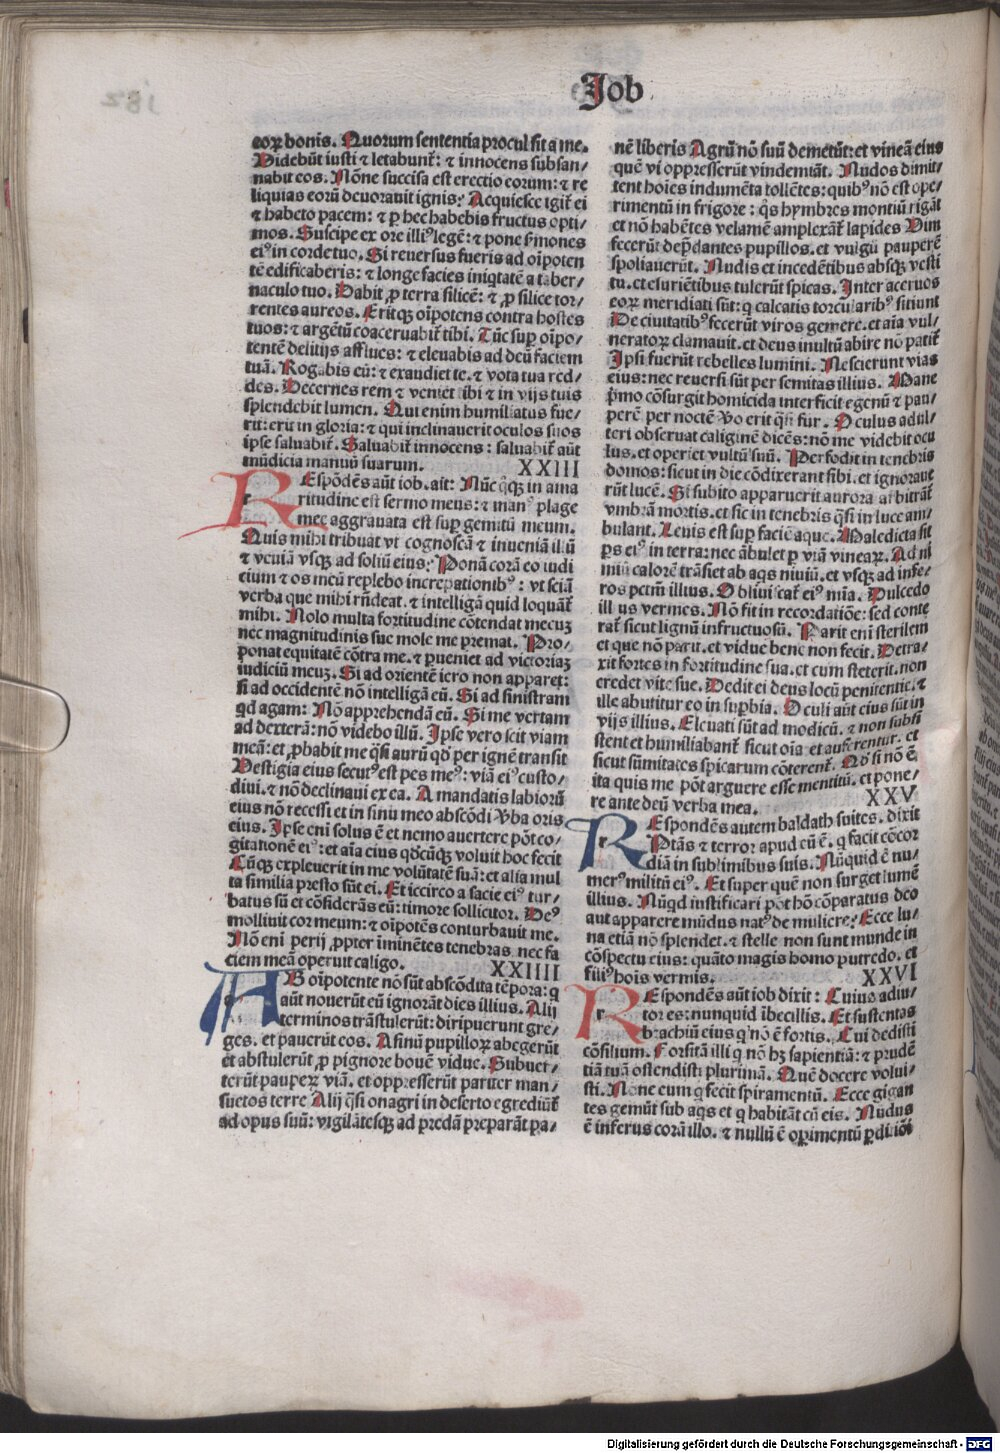 Job
eoꝝ bonis. Quorum sententia procul sit a me.
Videbūt iusti ⁊ letabunt᷑: ⁊ innocens subsan/
nabit eos. Nōne succisa est erectio eorum: ⁊ re
liquias eorū deuorauit ignis: Acquiesce igit᷑ ei
⁊ habeto pacem: ⁊ ꝑ hec habebis fructus opti/
mos. Suscipe ex ore illi⁹ legē: ⁊ pone s̄mones
ei⁹ in corde tuo. Si reuersus fueris ad oīpoten
tē edificaberis: ⁊ longe facies iniqtatē a taber/
naculo tuo. Dabit ꝓ terra silicē: ⁊ ꝓ silice tor/
rentes aureos. Eritqꝫ oīpotens contra hostes
tuos: ⁊ argētū coaceruabit᷑ tibi. Tūc suꝑ oīpo/
tentē delitijs afflues: ⁊ eleuabis ad deū faciem
tuā. Rogabis eū: ⁊ exaudiet te. ⁊ vota tua red/
des. Decernes rem ⁊ veniet tibi ⁊ in vijs tuis
splendebit lumen. Qui enim humiliatus fue/
rit: erit in gloria: ⁊ qui inclinauerit oculos suos
ipse saluabit᷑. Saluabit᷑ innocens: saluabit᷑ aūt
mūdicia manuū suarum. XXIII
REspōdēs aūt iob. ait: Nūc qꝫ in ama
ritudine est sermo meus: ⁊ man⁹ plage
mee aggrauata est suꝑ gemitū meum.
Quis mihi tribuat vt cognoscā ⁊ inueniā illū
⁊ veniā vsqꝫ ad soliū eius: Ponā corā eo iudi
cium ⁊ os meū replebo increpationib⁹: vt sciā
verba que mihi rn̄deat. ⁊ intelligā quid loquāt᷑
mihi. Nolo multa fortitudine cōtendat mecuꝫ
nec magnitudinis sue mole me premat. Pro/
ponat equitatē cōtra me. ⁊ ꝑueniet ad victoriaꝫ
iudiciū meuꝫ. Si ad orientē iero non apparet:
si ad occidentē nō intelligā eū. Si ad sinistram
qd agam: Nō apprehendā eū. Si me vertam
ad dexterā: nō videbo illū. Ipse vero scit viam
meā: et ꝓbabit me q̄si aurū qd per ignē transit
Vestigia eius secut⁹ est pes me⁹: viā ei⁹ custo/
diui. ⁊ nō declinaui ex ea. A mandatis labiorū
eius nō recessi et in sinu meo abscōdi v̓ba oris
eius. Ipse eni solus ē et nemo auertere pōt co/
gitationē ei⁹: et aīa eius qdcūqꝫ voluit hoc fecit
Cūqꝫ expleuerit in me volūtatē suā: et alia mul
ta similia presto sūt ei. Et iccirco a facie ei⁹ tur/
batus sū et cōsiderās eū: timore sollicitor. De⁹
molliuit cor meum: ⁊ oīpotēs conturbauit me.
Nō eni perij ꝓpter iminētes tenebras. nec fa
ciem meā operuit caligo. XXIIII
AB oīpotente nō sūt abscōdita tēpora: q
aūt nouerūt eū ignorāt dies illius. Alij
terminos trāstulerūt: diripuerunt gre/
ges. et pauerūt eos. Asinū pupilloꝝ abegerūt
et abstulerūt ꝓ pignore bouē vidue. Subuer/
terūt pauperꝝ viā. et oppresserūt pariter man/
suetos terre Alij q̄si onagri in deserto egrediūt᷑
ad opus suū: vigilātesqꝫ ad predā preparāt pa/
nē liberis Agrū nō suū demetūt: et vineā eius
quē vi oppresserūt vindemiāt. Nudos dimit/
tent hoīes indumēta tollētes: quib⁹ nō est ope/
rimentū in frigore: q̄s hymbres montiū rigāt
et nō habētes velamē amplexāt᷑ lapides Vim
fecerūt dep̄dantes pupillos. et vulgū pauperē
spoliauerūt. Nudis et incedētibus absqꝫ vesti
tu. et esuriētibus tulerūt spicas. Inter aceruos
eoꝝ meridiati sūt: q calcatis torcularib⁹ sitiunt
De ciuitatib⁹ fecerūt viros gemere. et aīa vul/
neratoꝝ clamauit. et deus inultū abire nō patit᷑
Ipsi fuerūt rebelles lumini. Nescierunt vias
eius: nec reuersi sūt per semitas illius. Mane
p̄mo cōsurgit homicida interficit egenū ⁊ pau/
perē per noctē v̓o erit q̄si fur. Oculus adul/
teri obseruat caliginē dicēs: nō me videbit ocu
lus. et operiet vultū suū. Perfodit in tenebris
domos: sicut in die cōdixerant sibi. et ignoraue
rūt lucē. Si subito apparuerit aurora arbitrāt᷑
vmbrā mortis. et sic in tenebris q̄si in luce am/
bulant. Leuis est suꝑ faciē aque. Maledicta sit
ꝑs ei⁹ in terra: nec ābulet ꝑ viā vineaꝝ. Ad ni
miū calorē trāsiet ab aqs niuiū. et vsqꝫ ad infe/
ros pctm̄ illius. Obliuiscat᷑ ei⁹ mīa. Dulcedo
illius vermes. Nō sit in recordatiōe: sed conte
rat᷑ sicut lignū infructuosū. Pauit eni sterilem
et que nō parit. et vidue bene non fecit. Detra/
xit fortes in fortitudine sua. et cum steterit. non
credet vite sue. Dedit ei deus locū penitentie. ⁊
ille abutitur eo in supbia. Oculi aūt eius sūt in
vijs illius. Eleuati sūt ad modicū. ⁊ non subsi
stent et humiliabant᷑ sicut oīa et auferentur. et
sicut sūmitates spicarum cōterent᷑. Qd si nō ē
ita quis me pōt arguere esse mentitū. et pone/
re ante deū verba mea. XXV
REspondēs autem baldath suites. dixit
Ptās ⁊ terror apud eū ē. q facit cōcor
diā in sublimibus suis. Nūquid ē nu/
mer⁹ militū ei⁹. Et super quē non surget lumē
illius. Nūqd iustificari pōt hō cōparatus deo
aut apparere mūdus nat⁹ de muliere: Ecce lu/
na etiā nō splendet. ⁊ stelle non sunt munde in
cōspectu eius: quāto magis homo putredo. et
fili⁹ hoīs vermis. XXVI
REspondēs aūt iob dixit: Cuius adiu/
tor es: nunquid ībecillis. Et sustentas
brachiū eius q nō ē fortis. Cui dedisti
cōsilium. Forsitā illi q nō hꝫ sapientiā: ⁊ prudē
tiā tuā ostendisti plurimā. Quē docere volui/
sti. Nōne eum q fecit spiramentū. Ecce gigan
tes gemūt sub aqs et q habitāt cū eis. Nudus
ē infernus corā illo. ⁊ nullū ē oꝑimentū ꝑditiōi
Digitalisierung gefördert durch die Deutsche Forschungsgemeinschaft - DFG